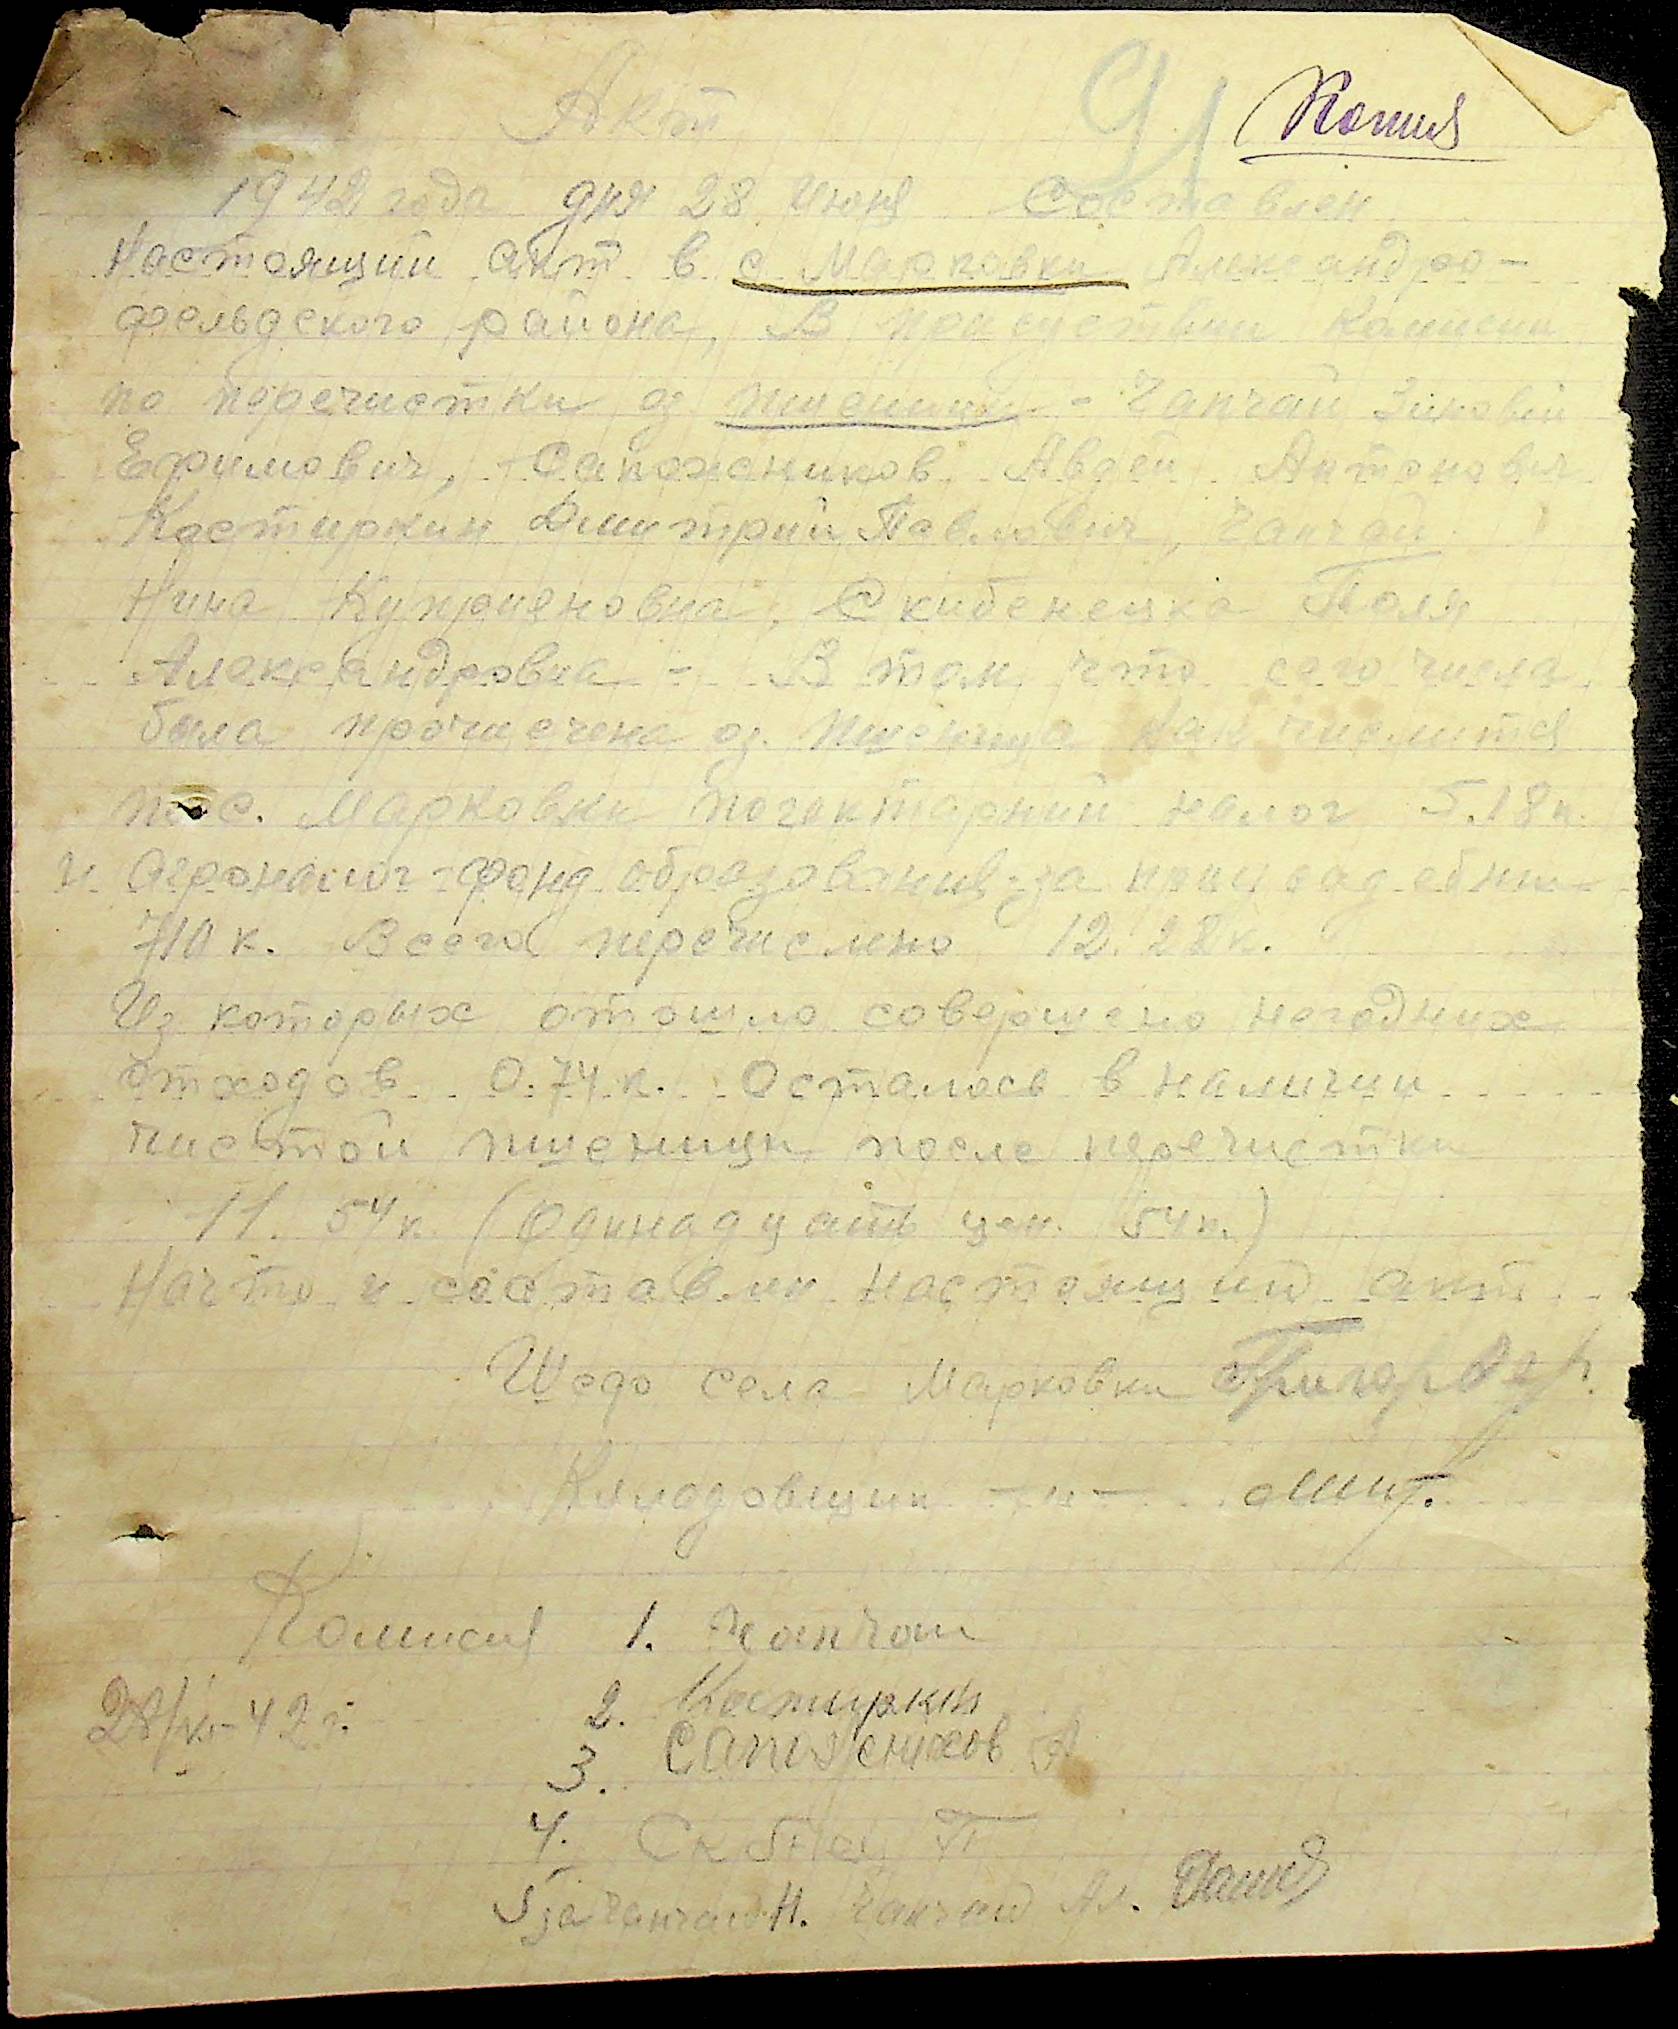 Акт 91 Копия
1942 года дня 28 Июня Составлен
Настоящий акт в с Марковки Александро-
фельдского района, В присуствии Комисии
по перечистки оз пшеници - Чапчай Зиновий
Ефимович, Сапожников Авдей Антонович
Костиркин Дмитрий Павлович, Чапчай
Нина Куприеновна, Скибенецка Поля
Александровна - В том что сего числа
была прочисчена оз. пшеница как числится
по с. Марковки погектарний налог 5.18к.
и агроналог-фонд образования-за приусадебние
710 к. Всего перечислено 12.28к.
Из которых отошло совершено негодних
отходов 0.74к. Осталось в наличии
чистой пшеници после перечистки
11. 54к. (Одинадцать цен. 54к.)
На что и составлен настоящий акт
Шедо села Марковки
Кладовщик -"-
Комисия 1. Чапчай
28/VI-42г. 2. Костиркин
3. Сапожников А
4. Скбнец П
5 за Чапчай Н. Чапчай Ал.